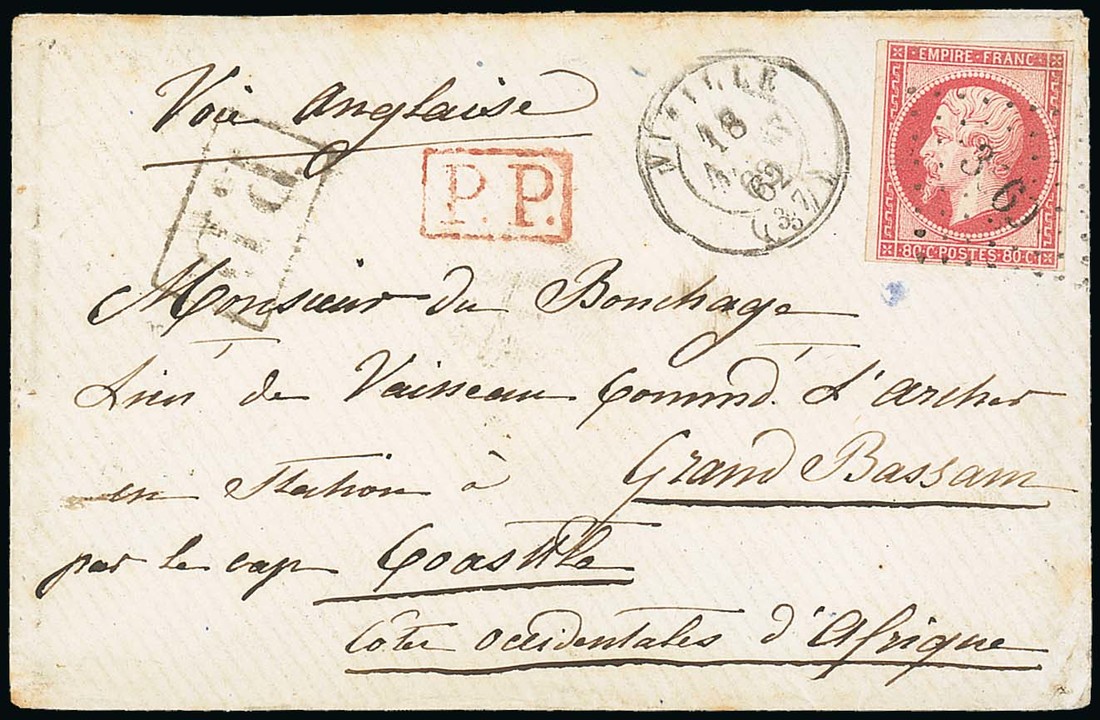 Voie anglaise
P.P.
P.D.
VIZILLE
18
62
(37)
EMPIRE FRANC
80·C·POSTES·80·C
3 6
Monsieur du Bouchage
Lieu de Vaisseau Commd. L'archer
en Station à Grand Bassam
par le cap Coastle
Côtes occidentales d'Afrique